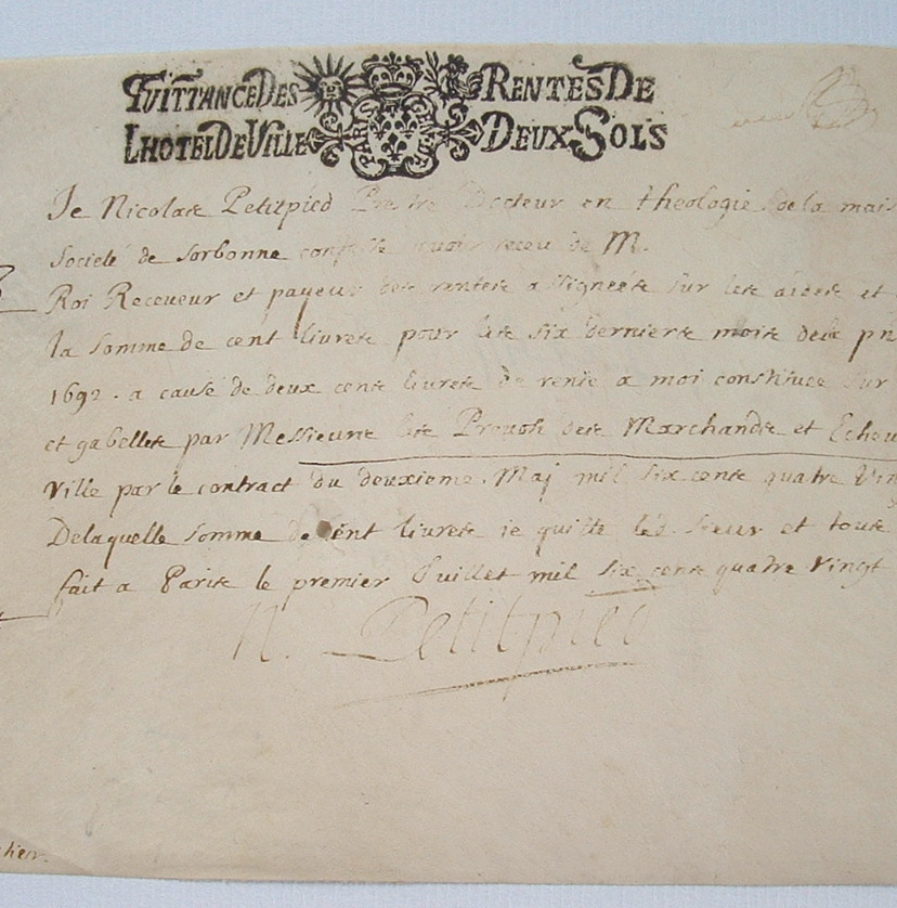 QUITTANCE DES RENTES DE
LHOTEL DE VILLE PARIS DEUX SOLS
Je Nicolas Petitpied Prestre Docteur en theologie de la mais
Societé de Sorbonne confesse avoir receu de M.
Roi Receveur et payeur des rentes assignées sur les aides et
la somme de cent livres pour les six derniers mois de la pn
1692. a cause de deux cens livres de rente a moi constituee sur
et gabelles par Messieurs les Prevosts des Marchands et Echev
ville par le contract du deuxieme Maj mil six cens quatre vin
De laquelle somme de cent livres je quitte led. sieur et tous
fait a Paris le premier Juillet mil six cens quatre vingt
N. Petitpied